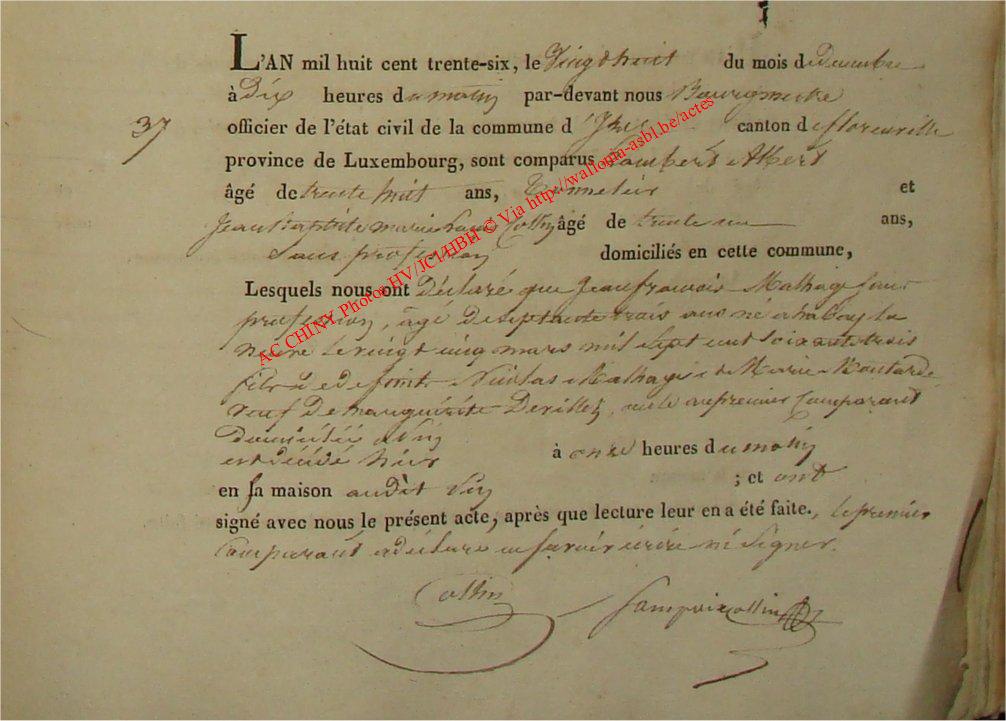 L'AN mil huit cent trente-six, le vingt huit du mois de décembre
à dix heures du matin par-devant nous Bourgmestre
37 officier de l'état civil de la commune d' canton de florenville
province de Luxembourg, sont comparus Lambert Albert
âgé de trente huit ans, et
Jean baptiste marie Collin âgé de trente ans,
Sans profession domiciliés en cette commune,
Lesquels nous ont Déclaré que Jean françois Malhage sans
profession, âgé de septante trois ans né à habay la
neuve le vingt cinq mars mil sept cent soixante trois
fils de défunts Nicolas Malhage et Marie Moutarde
veuf De marguerite au premier Comparant
Domicilié
est décédé hier à onze heures du matin
en sa maison audit ; et ont
signé avec nous le présent acte, après que lecture leur en a été faite., le premier
Comparant a déclaré ne savoir écrire ni Signer.
Collin
AC CHINY Photos HV/JCl/HBH © Via http://wallonia-asbl.be/actes